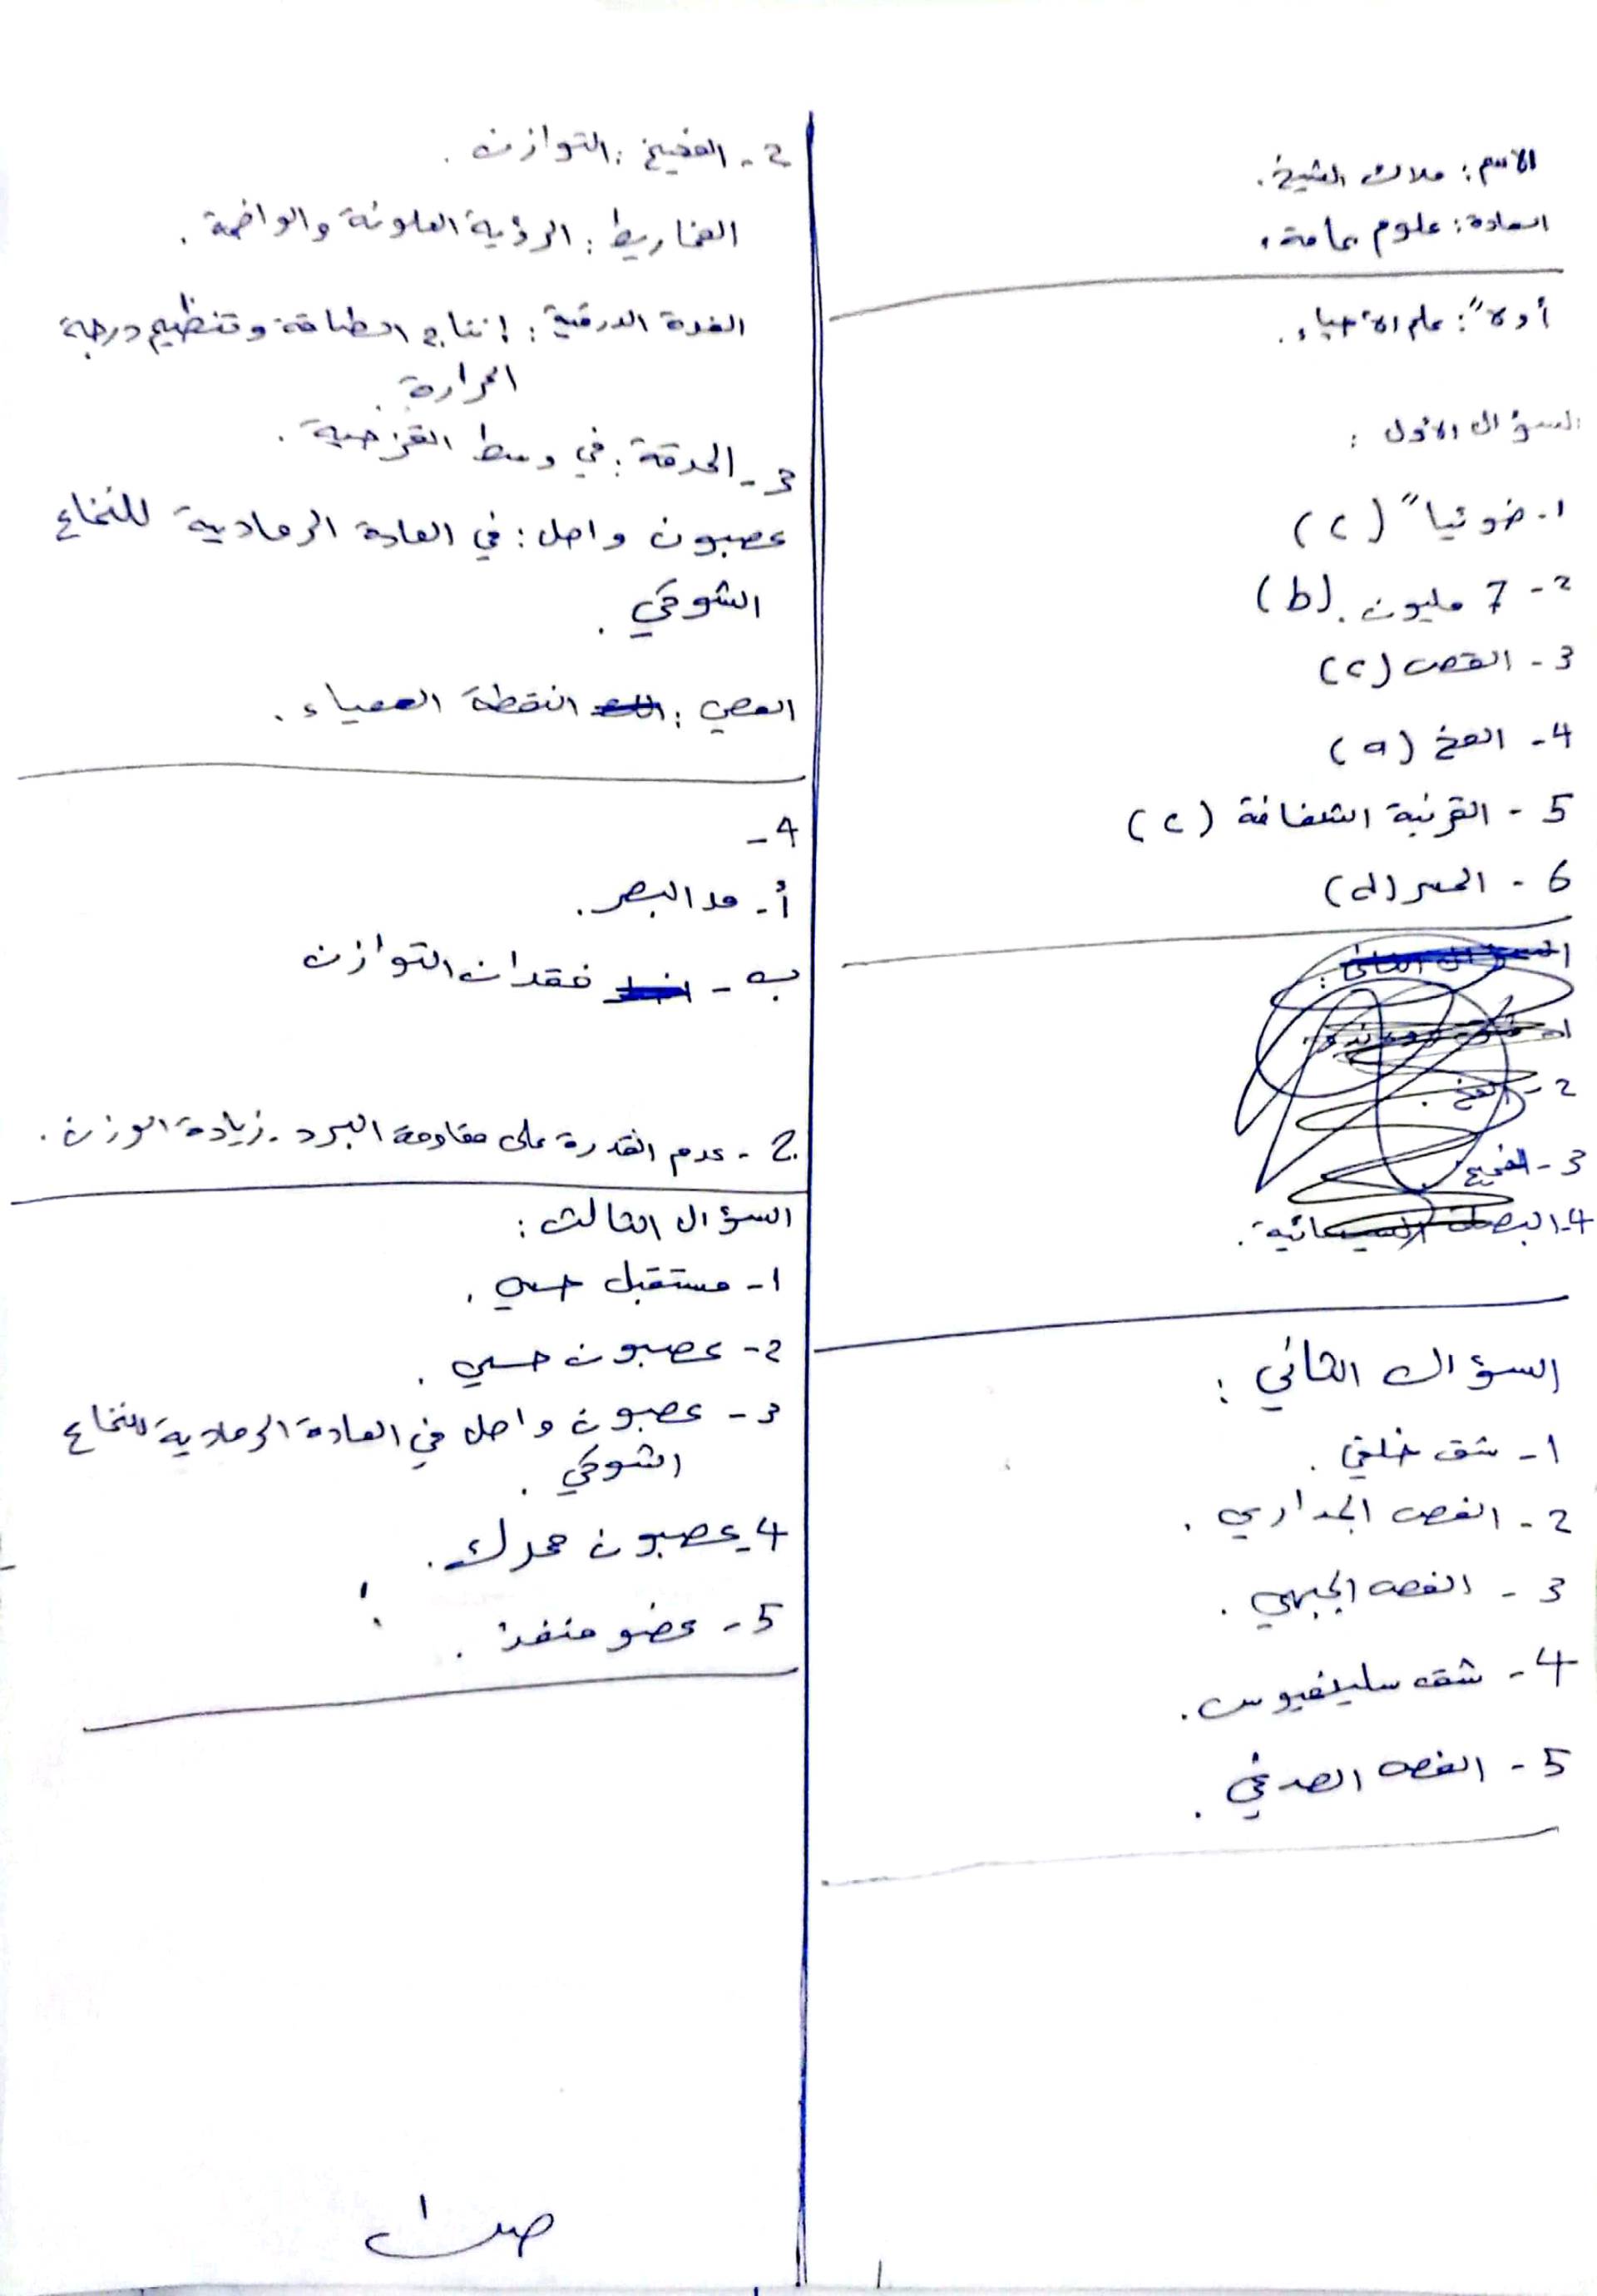 الاسم: ملاك الشيخ.
المادة: علوم عامة.
أولاً: علم الأحياء.
السؤال الأول:
1- ضوئياً (c)
2- 7 مليون. (b)
3- القص (c)
4- المخ (a)
5- القرنية الشفافة (c)
6- الحسر (d)
2- المخ.
3- المخيخ.
4- البصلة السيسائية.
السؤال الثاني:
1- شق خلفي.
2- الفص الجداري.
3- الفص الجبهي.
4- شق سيلفيوس.
5- الفص الصدغي.
2- المخيخ: التوازن.
المخاريط: الرؤية الملونة والواضحة.
الغدة الدرقية: إنتاج الطاقة وتنظيم درجة
الحرارة.
3- الحدقة: في وسط القزحية.
عصبون واصل: في المادة الرمادية للنخاع
الشوكي.
العصي: النقطة العمياء.
4-
أ- مد البصر.
ب- فقدان التوازن
2- عدم القدرة على مقاومة البرد. زيادة الوزن.
السؤال الثالث:
1- مستقبل حسي.
2- عصبون حسي.
3- عصبون واصل في المادة الرمادية للنخاع
الشوكي.
4- عصبون محرك.
5- عضو منفذ.
صـ ١